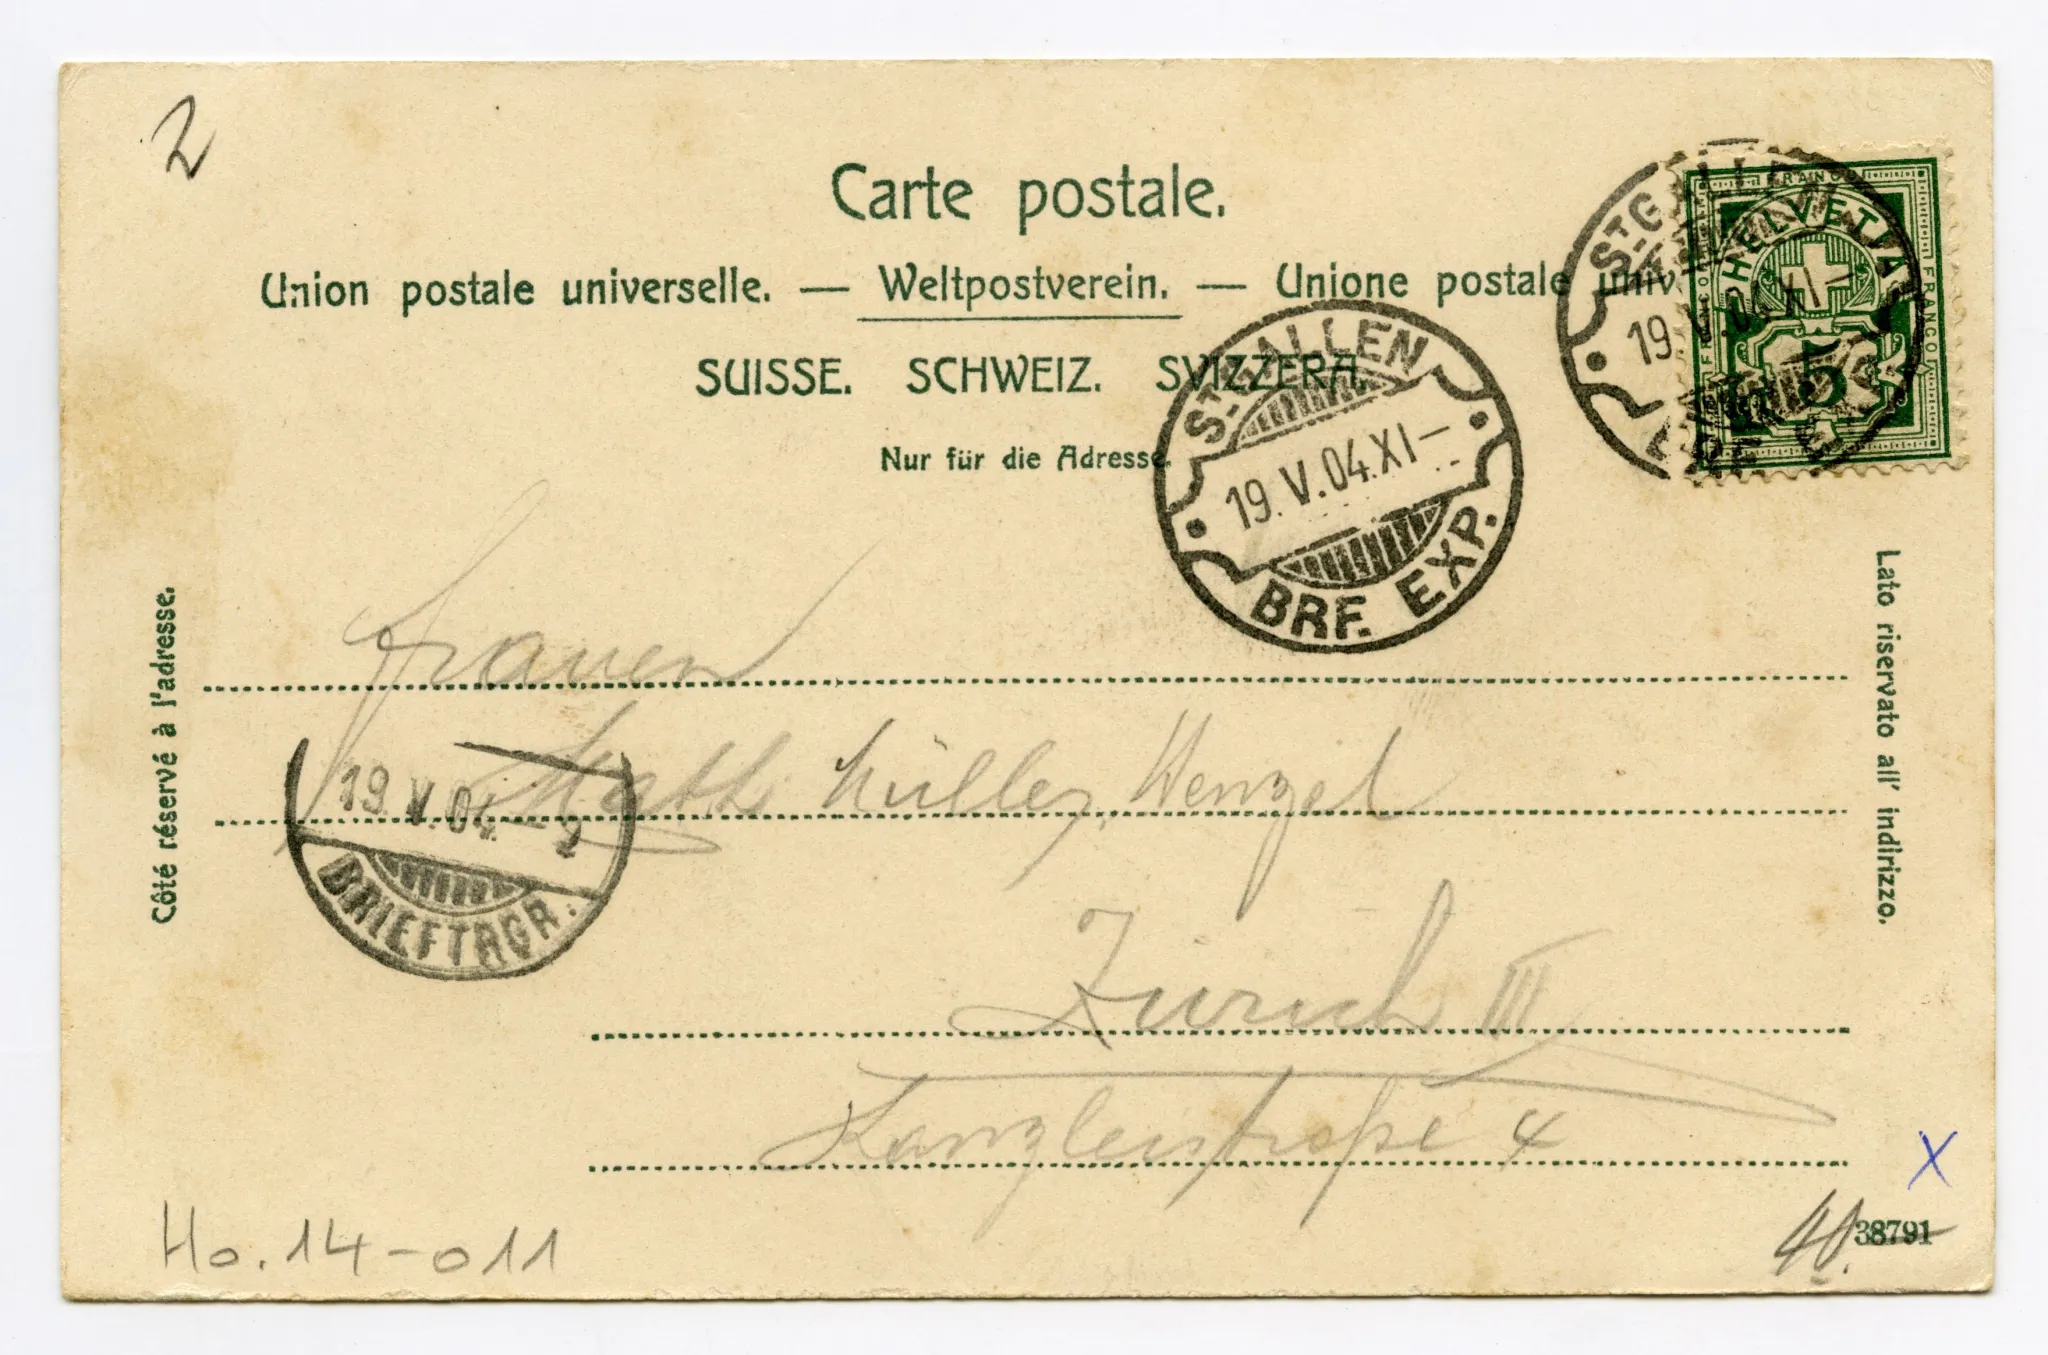 2
Carte postale.
Union postale universelle. — Weltpostverein. — Unione postale univ
SUISSE. SCHWEIZ. SVIZZERA.
Nur für die Adresse.
FRANCO
HELVETIA
FRANCO
FRANCO
5
ST. GALLEN
19.V.04.XI–
ST. GALLEN
19.V.04.XI–
BRF. EXP.
Côté réservé à l'adresse.
Lato riservato all' indirizzo.
Frauen
Müller, Wenzel
19.V.04.– 2
BRIEFTRGR.
Zürich III
Kanzleistraße 4
X
Ho. 14-011
40.
38791